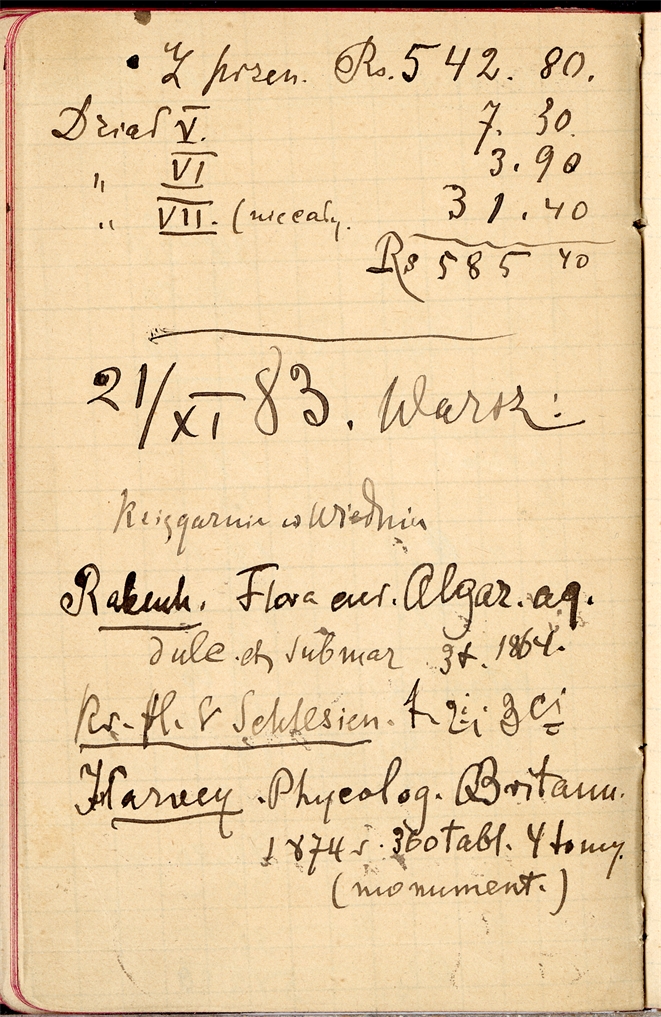 Z przen. Rs. 542. 80.
Dział V. 7. 30
" VI 3.90
" VII. (niecały. 31.40
Rs 585 40
21/XI 83. Warsz:
Księgarnia w Wiedniu
Rabenh. Flora eur. Algar. aq.
dulc. et submar 3 t. 1864.
Kr. fl. v Schlesien. t. 2i i 3ci
Harvey. Phycolog. Britann.
1874 r. 360 tabl. 4 tomy.
(monument.)